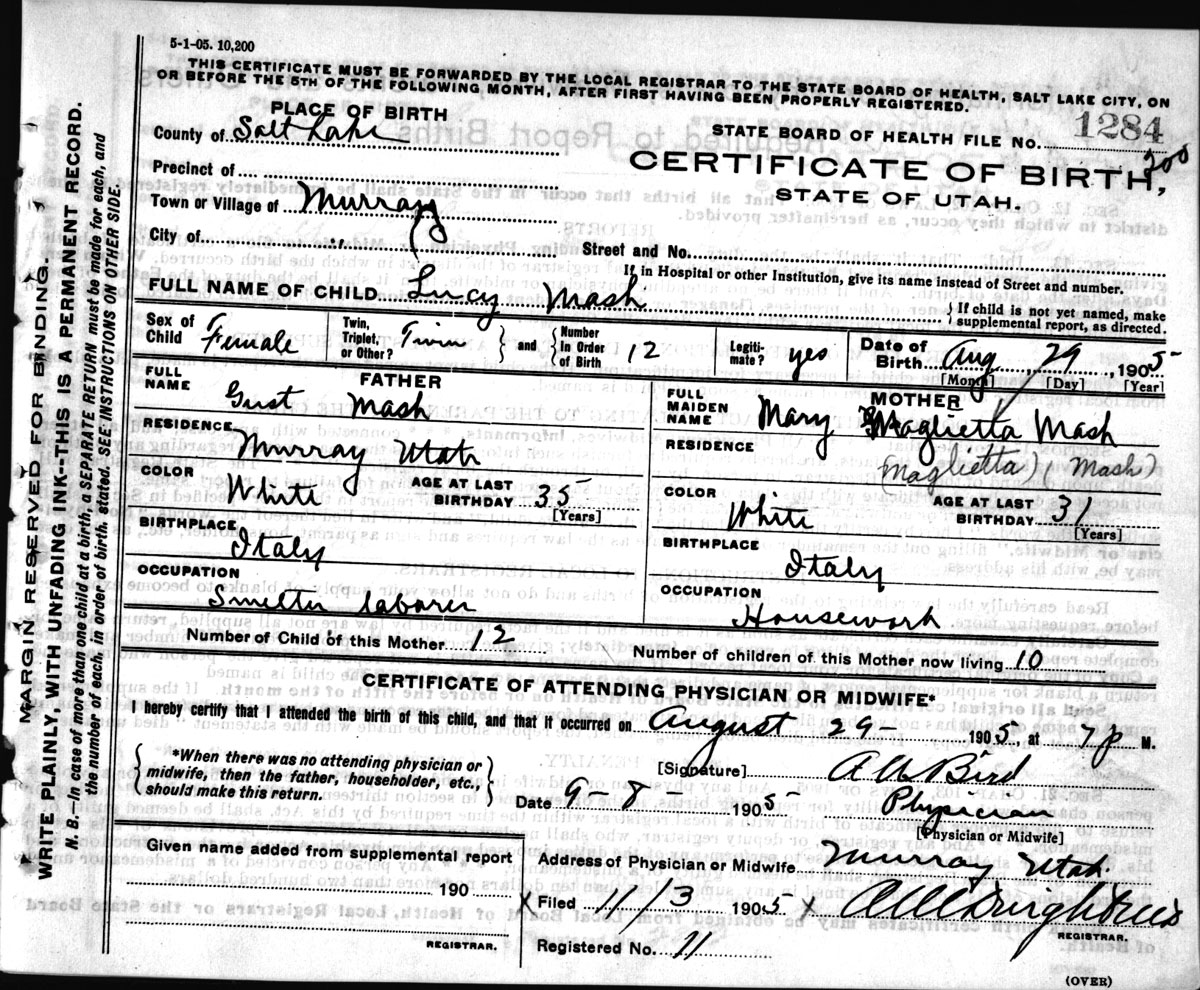 5-1-05. 10,200
THIS CERTIFICATE MUST BE FORWARDED BY THE LOCAL REGISTRAR TO THE STATE BOARD OF HEALTH, SALT LAKE CITY, ON
OR BEFORE THE 5TH OF THE FOLLOWING MONTH, AFTER FIRST HAVING BEEN PROPERLY REGISTERED.
PLACE OF BIRTH
County of Salt Lake
STATE BOARD OF HEALTH FILE NO. 1284
200
Precinct of
CERTIFICATE OF BIRTH,
STATE OF UTAH.
Town or Village of Murray
City of
Street and No.
If in Hospital or other Institution, give its name instead of Street and number.
FULL NAME OF CHILD Lucy Mash
If child is not yet named, make
supplemental report, as directed.
Sex of Child Female
Twin, Triplet, or Other? Twin
and Number In Order of Birth 12
Legiti-mate? yes
Date of Birth Aug 29, 1905
[Month] [Day] [Year]
FATHER
FULL NAME Gust Mash
RESIDENCE Murray Utah
COLOR White
AGE AT LAST BIRTHDAY 35
[Years]
BIRTHPLACE Italy
OCCUPATION Smelter laborer
MOTHER
FULL MAIDEN NAME Mary Maglietta Mash
RESIDENCE
(Maglietta) (Mash)
COLOR White
AGE AT LAST BIRTHDAY 31
[Years]
BIRTHPLACE Italy
OCCUPATION Housework
Number of Child of this Mother 12
Number of children of this Mother now living 10
CERTIFICATE OF ATTENDING PHYSICIAN OR MIDWIFE*
I hereby certify that I attended the birth of this child, and that it occurred on August 29- 1905, at 7 P M.
*When there was no attending physician or
midwife, then the father, householder, etc.,
should make this return.
[Signature] Bird
Date 9-8 1905
Physician
[Physician or Midwife]
Given name added from supplemental report
190
REGISTRAR.
Address of Physician or Midwife Murray Utah.
X Filed 11/3 1905 X
REGISTRAR.
Registered No. 11
(OVER)
MARGIN RESERVED FOR BINDING.
WRITE PLAINLY WITH UNFADING INK--THIS IS A PERMANENT RECORD.
N. B. In case of more than one child at a birth, a SEPARATE RETURN must be made for each, and
the number of each, in order of birth, stated. SEE INSTRUCTIONS ON OTHER SIDE.